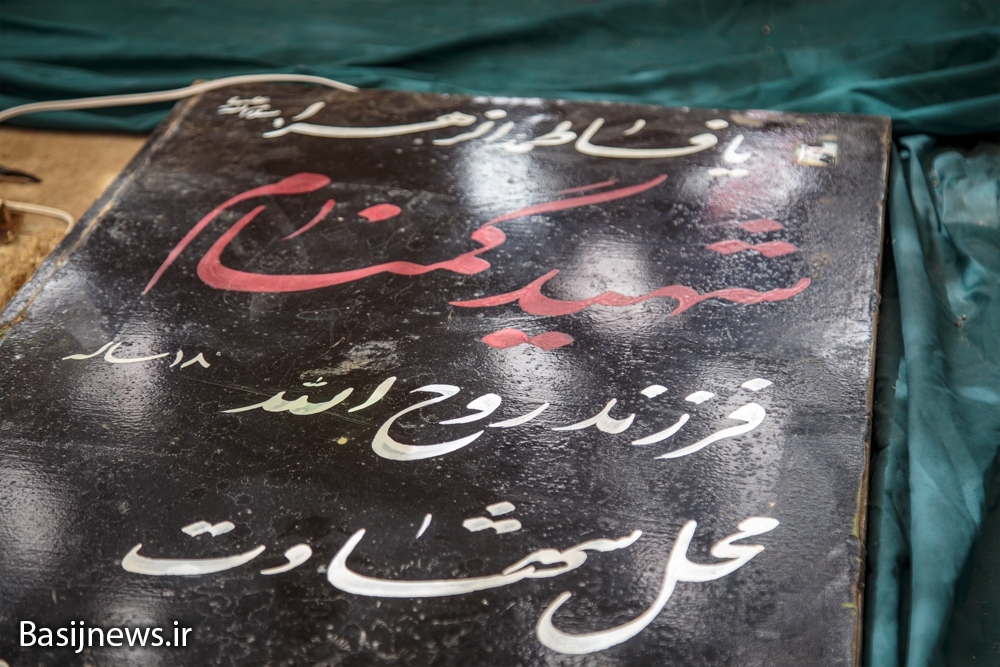 یا فاطمة الزهرا سلام الله علیها
شهید گمنام
فرزند روح الله ۱۸ ساله
محل شهادت
Basijnews.ir